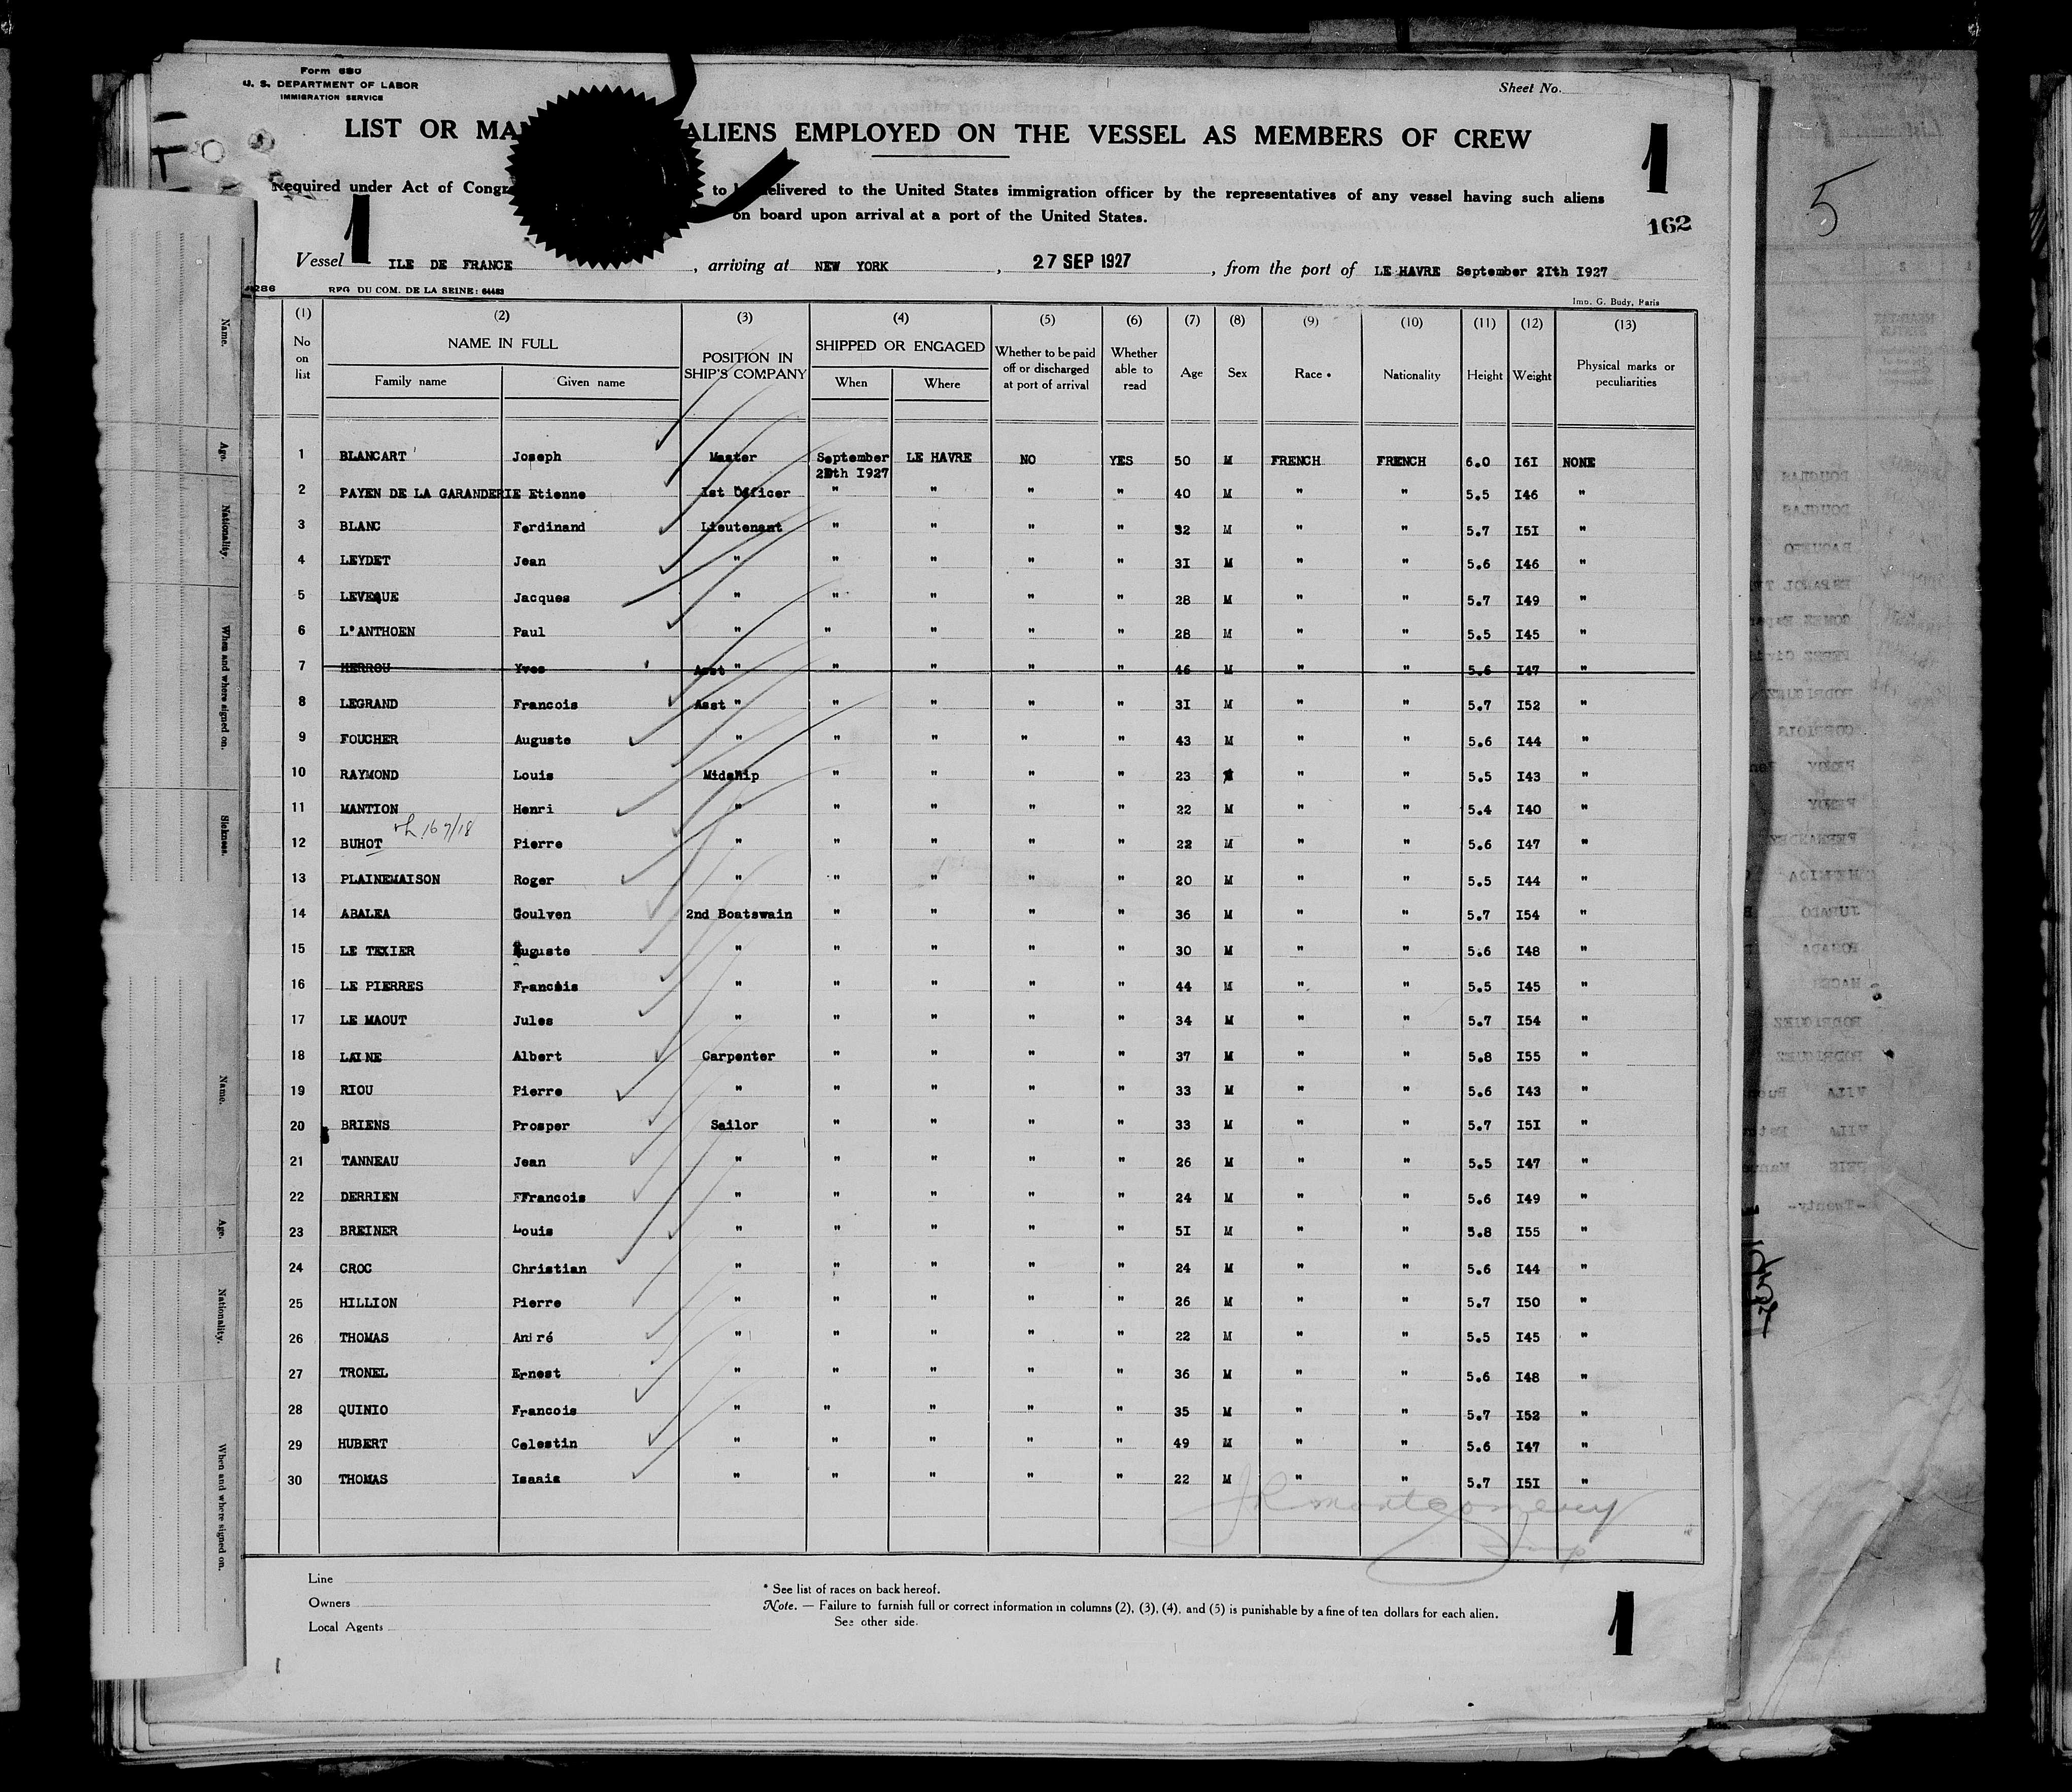 Form 680
U. S. DEPARTMENT OF LABOR
IMMIGRATION SERVICE
Sheet No.
LIST OR MA ALIENS EMPLOYED ON THE VESSEL AS MEMBERS OF CREW
1
Required under Act of Congr to be delivered to the United States immigration officer by the representatives of any vessel having such aliens
on board upon arrival at a port of the United States.
1
162
5
Vessel ILE DE FRANCE, arriving at NEW YORK, 27 SEP 1927, from the port of LE HAVRE September 2Ith I927
REG. DU COM. DE LA SEINE: 64483
Imp. G. Budy, Paris
(1) (2) (3) (4) (5) (6) (7) (8) (9) (10) (11) (12) (13)
No on list NAME IN FULL Family name Given name POSITION IN SHIP'S COMPANY SHIPPED OR ENGAGED When Where Whether to be paid off or discharged at port of arrival Whether able to read Age Sex Race * Nationality Height Weight Physical marks or peculiarities
1 BLANCART Joseph Master September 20th I927 LE HAVRE NO YES 50 M FRENCH FRENCH 6.0 I6I NONE
2 PAYEN DE LA GARANDERIE Etienne Ist Officer " " " " 40 M " " 5.5 I46 "
3 BLANC Ferdinand Lieutenant " " " " 32 M " " 5.7 I5I "
4 LEYDET Jean " " " " " 3I M " " 5.6 I46 "
5 LEVEQUE Jacques " " " " " 28 M " " 5.7 I49 "
6 L'ANTHOEN Paul " " " " " 28 M " " 5.5 I45 "
7 HERROU Yves Asst " " " " " 46 M " " 5.6 I47 "
8 LEGRAND Francois Asst " " " " " 3I M " " 5.7 I52 "
9 FOUCHER Auguste " " " " " 43 M " " 5.6 I44 "
10 RAYMOND Louis Midship " " " " 23 M " " 5.5 I43 "
11 MANTION Henri " " " " " 22 M " " 5.4 I40 "
12 BUHOT Pierre " " " " " 22 M " " 5.6 I47 "
13 PLAINEMAISON Roger " " " " " 20 M " " 5.5 I44 "
14 ABALEA Goulven 2nd Boatswain " " " " 36 M " " 5.7 I54 "
15 LE TEXIER Auguste " " " " " 30 M " " 5.6 I48 "
16 LE PIERRES Francois " " " " " 44 M " " 5.5 I45 "
17 LE MAOUT Jules " " " " " 34 M " " 5.7 I54 "
18 LAINE Albert Carpenter " " " " 37 M " " 5.8 I55 "
19 RIOU Pierre " " " " " 33 M " " 5.6 I43 "
20 BRIENS Prosper Sailor " " " " 33 M " " 5.7 I5I "
21 TANNEAU Jean " " " " " 26 M " " 5.5 I47 "
22 DERRIEN FFrancois " " " " " 24 M " " 5.6 I49 "
23 BREINER Louis " " " " " 5I M " " 5.8 I55 "
24 CROC Christian " " " " " 24 M " " 5.6 I44 "
25 HILLION Pierre " " " " " 26 M " " 5.7 I50 "
26 THOMAS André " " " " " 22 M " " 5.5 I45 "
27 TRONEL Ernest " " " " " 36 M " " 5.6 I48 "
28 QUINIO Francois " " " " " 35 M " " 5.7 I52 "
29 HUBERT Celestin " " " " " 49 M " " 5.6 I47 "
30 THOMAS Isaaia " " " " " 22 M " " 5.7 I5I "
JR Montgomery
Insp
Line
Owners
Local Agents
* See list of races on back hereof.
Note. — Failure to furnish full or correct information in columns (2), (3), (4), and (5) is punishable by a fine of ten dollars for each alien.
See other side.
1
Name.
Age.
Nationality.
When and where signed on.
Sickness.
Name.
Age.
Nationality.
When and where signed on.